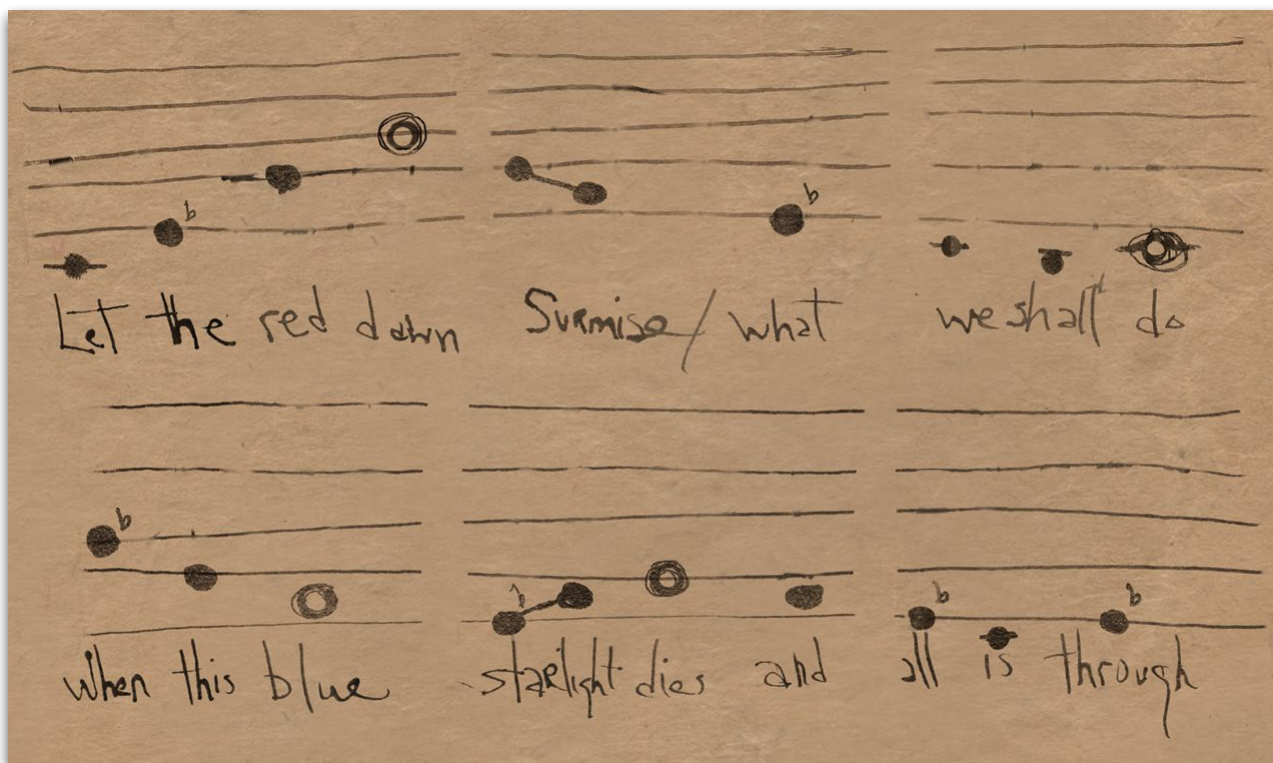 Let the red dawn Surmise/what we shall do
When this blue starlight dies and all is through